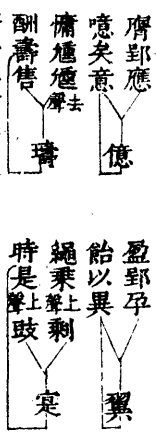 膺郢應
噫矣意
億
慵尰尰去聲
酬壽售
璹
盈郢孕
飴以異
翼
繩乘上聲剩
時是上聲豉
寔